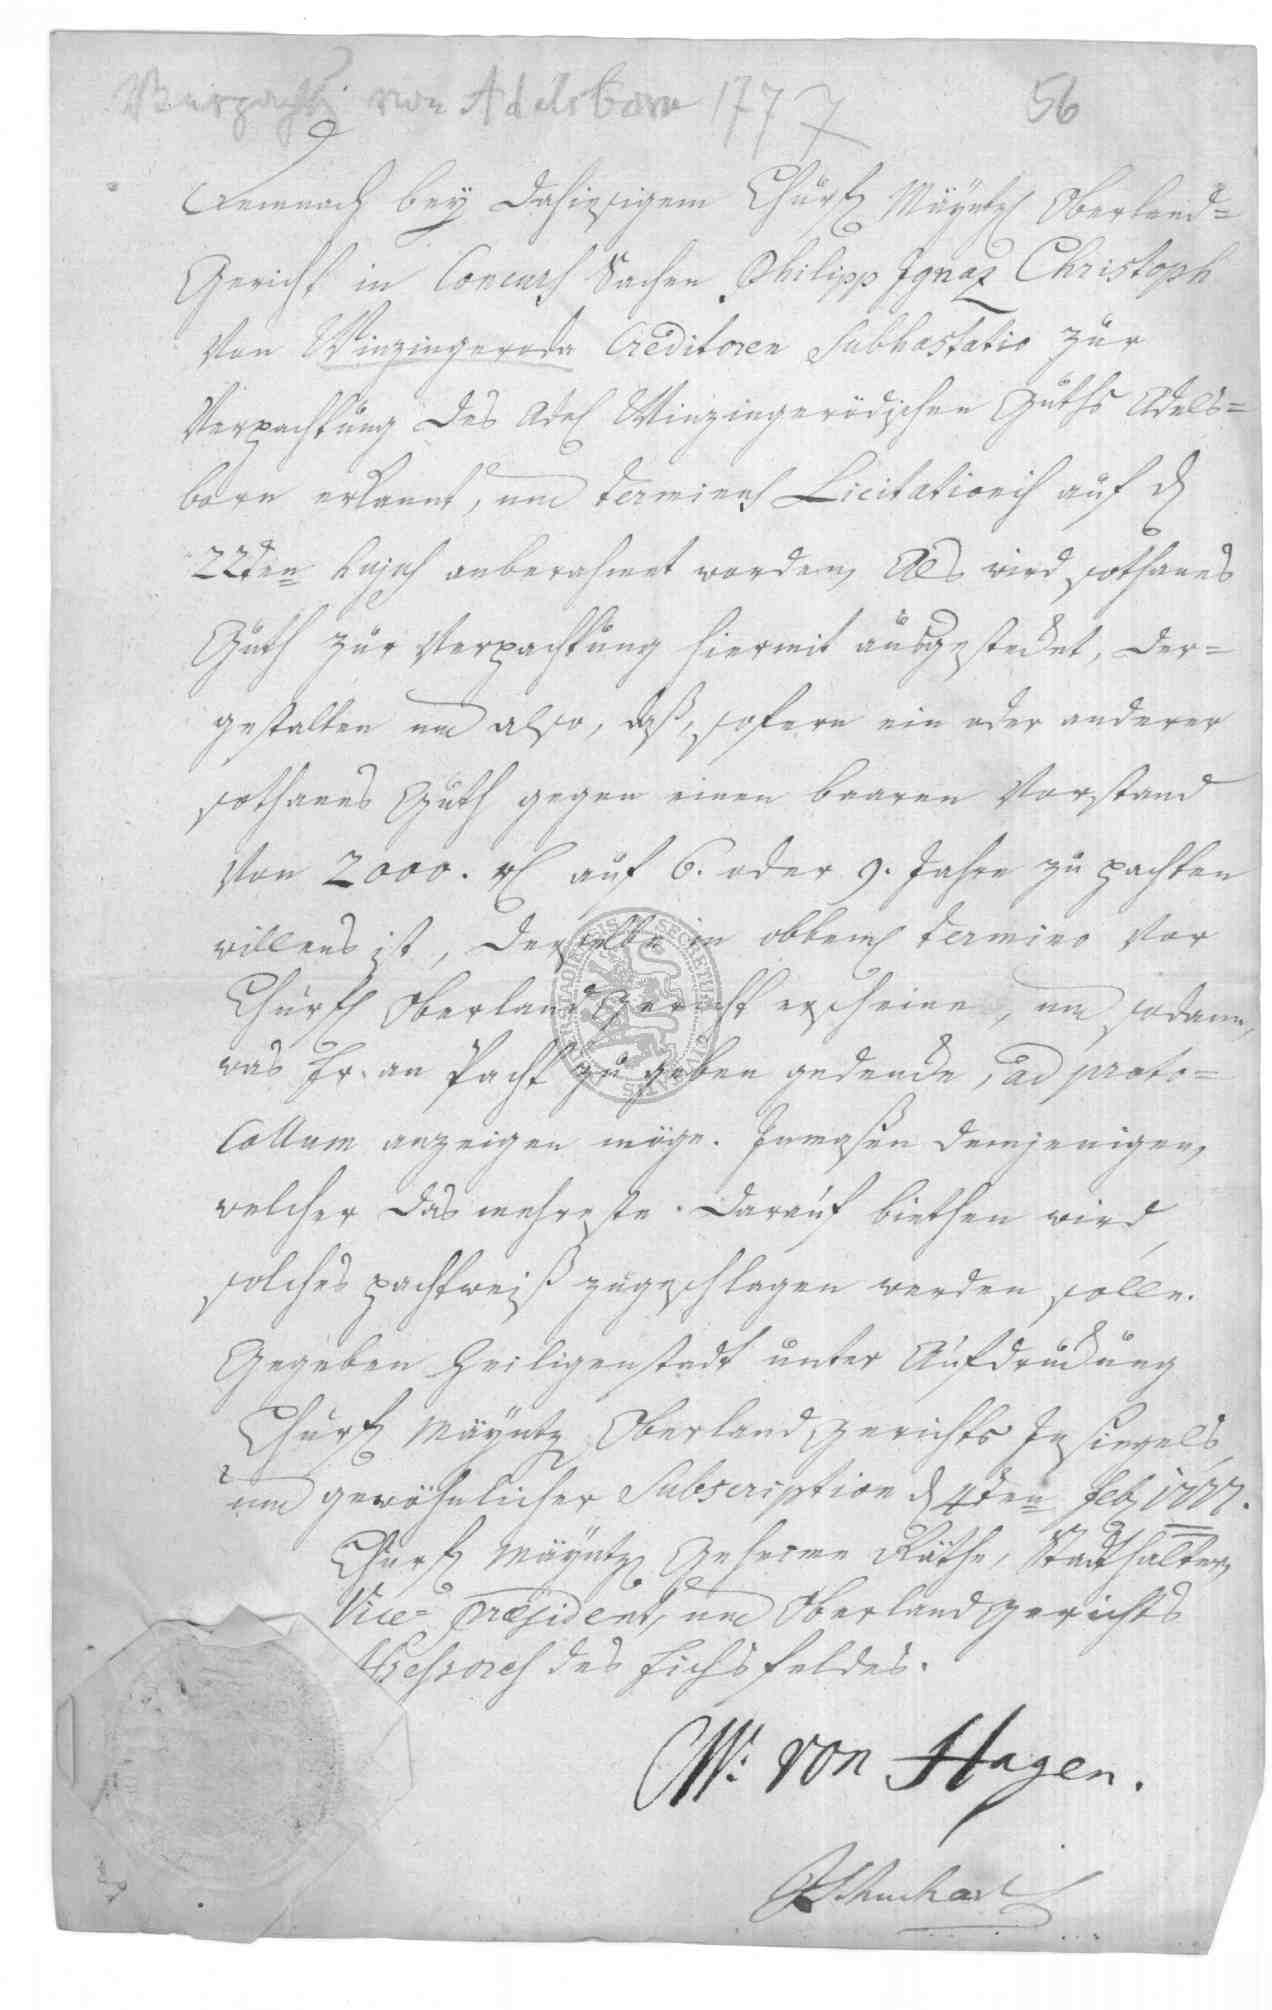 Verpachtg von Adelsborn 1777
56
Demnach bey dahiesigem Churf Mäyntz Oberland=
Gericht in Concurs Sachen Philipp Ignaz Christoph
von Winzingeroda Creditoren Subhastatio zur
Verpachtung des Adel Winzingerödischen Guths Adels=
born erkannt, und terminus Licitationis auf d
22ten hujus anberahmet worden, Als wird sothanes
Guth zur Verpachtung hiermit ausgestecket, der=
gestalten und also, daß, sofern ein oder anderer
sothanes Guth gegen einen baaren Vorstand
von 2000. rl auf 6. oder 9. Jahre zu pachten
willens ist, derselbe in obbem termino vor
Churf Oberlandgericht erscheine, und sodann,
was Er an Pacht zu geben gedencke, ad proto=
collum anzeigen möge. Inmaßen demjenigen,
welcher das mehreste darauf biethen wird,
solches pachtweiß zugeschlagen werden solle.
Gegeben Heiligenstadt unter Aufdruckung
Churf Mäyntz Oberlandgerichts Insiegels,
und gewöhnlicher Subscription d 4ten Feb 1777.
Churf Mäyntz Geheime Räthe, Stadthalter,
Vice-Præsident, und Oberlandgerichts
Assessores des Eichsfeldes.
W: von Hagen.
SECRETUM CIVITATIS